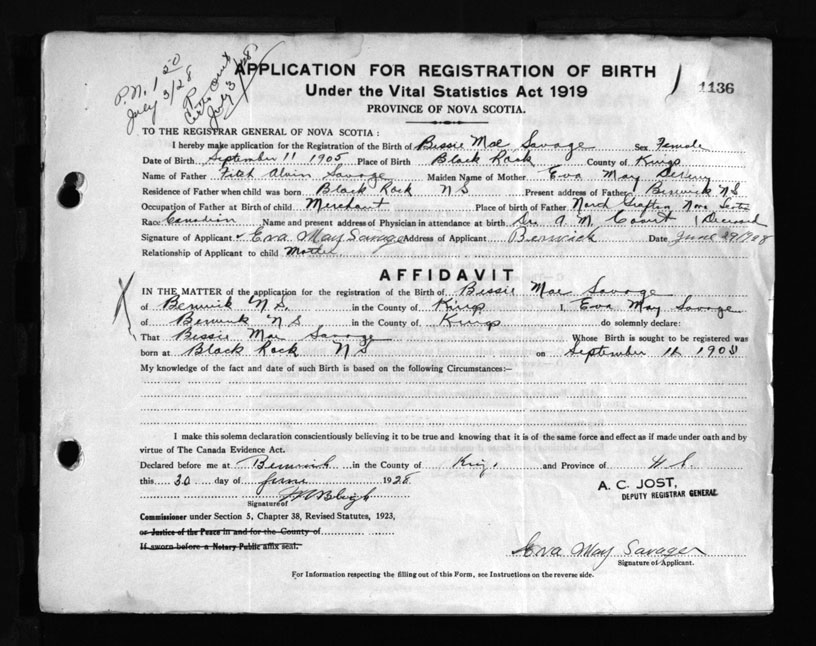 P.N. 1 50
July 3/28
July 3/28
APPLICATION FOR REGISTRATION OF BIRTH
1136
Under the Vital Statistics Act 1919
PROVINCE OF NOVA SCOTIA.
TO THE REGISTRAR GENERAL OF NOVA SCOTIA:
I hereby make application for the Registration of the Birth of Bessie Mae Savage Sex Female
Date of Birth September 11 1905 Place of Birth Black Rock County of Kings
Name of Father Fitch Alvin Savage Maiden Name of Mother Eva May
Residence of Father when child was born Black Rock NS Present address of Father Berwick NS
Occupation of Father at Birth of child Merchant Place of birth of Father North Grafton Nova Scotia
Race Canadian Name and present address of Physician in attendance at birth A. M. Deceased
Signature of Applicant Eva May Savage Address of Applicant Berwick Date June 29/1928
Relationship of Applicant to child Mother
AFFIDAVIT
IN THE MATTER of the application for the registration of the Birth of Bessie Mae Savage
of Berwick N.S. in the County of Kings I, Eva May Savage
of Berwick N S in the County of Kings do solemnly declare:
That Bessie Mae Savage Whose Birth is sought to be registered was
born at Black Rock N S on September 11
My knowledge of the fact and date of such Birth is based on the following Circumstances:—
I make this solemn declaration conscientiously believing it to be true and knowing that it is of the same force and effect as if made under oath and by
virtue of The Canada Evidence Act.
Declared before me at Berwick in the County of Kings and Province of N.S.
this 30 day of June 1928
A. C. JOST,
DEPUTY REGISTRAR GENERAL
Signature of
Commissioner under Section 5, Chapter 38, Revised Statutes, 1923,
or Justice of the Peace in and for the County of
If sworn before a Notary Public affix seal.
Eva May Savage
Signature of Applicant.
For Information respecting the filling out of this Form, see Instructions on the reverse side.